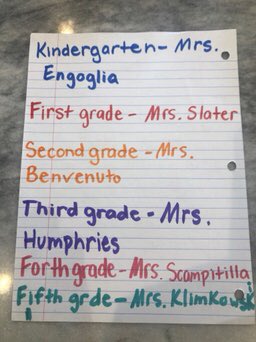 Kindergarten- Mrs.
Engoglia
First grade - Mrs. Slater
Second grade - Mrs.
Benvenuto
Third grade - Mrs.
Humphries
Forth grade - Mrs. Scampitilla
Fifth grde - Mrs. Klimkowski